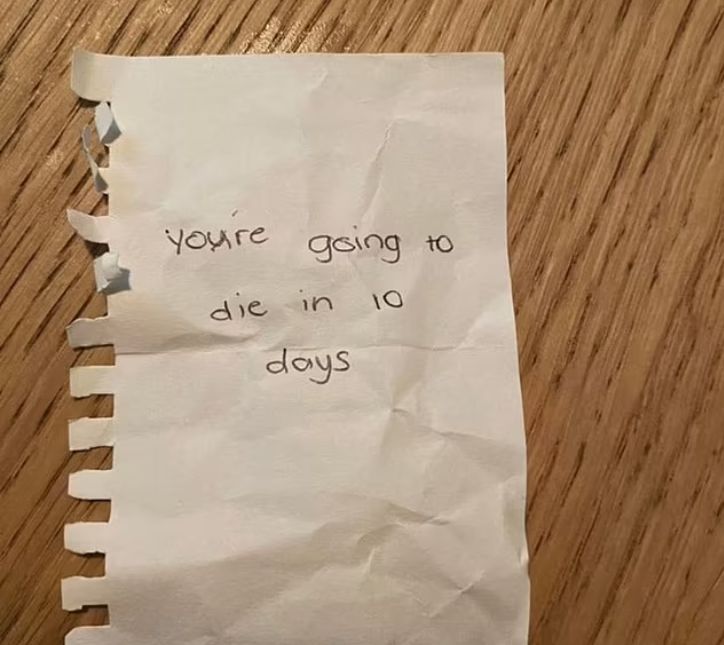 you're going to
die in 10
days